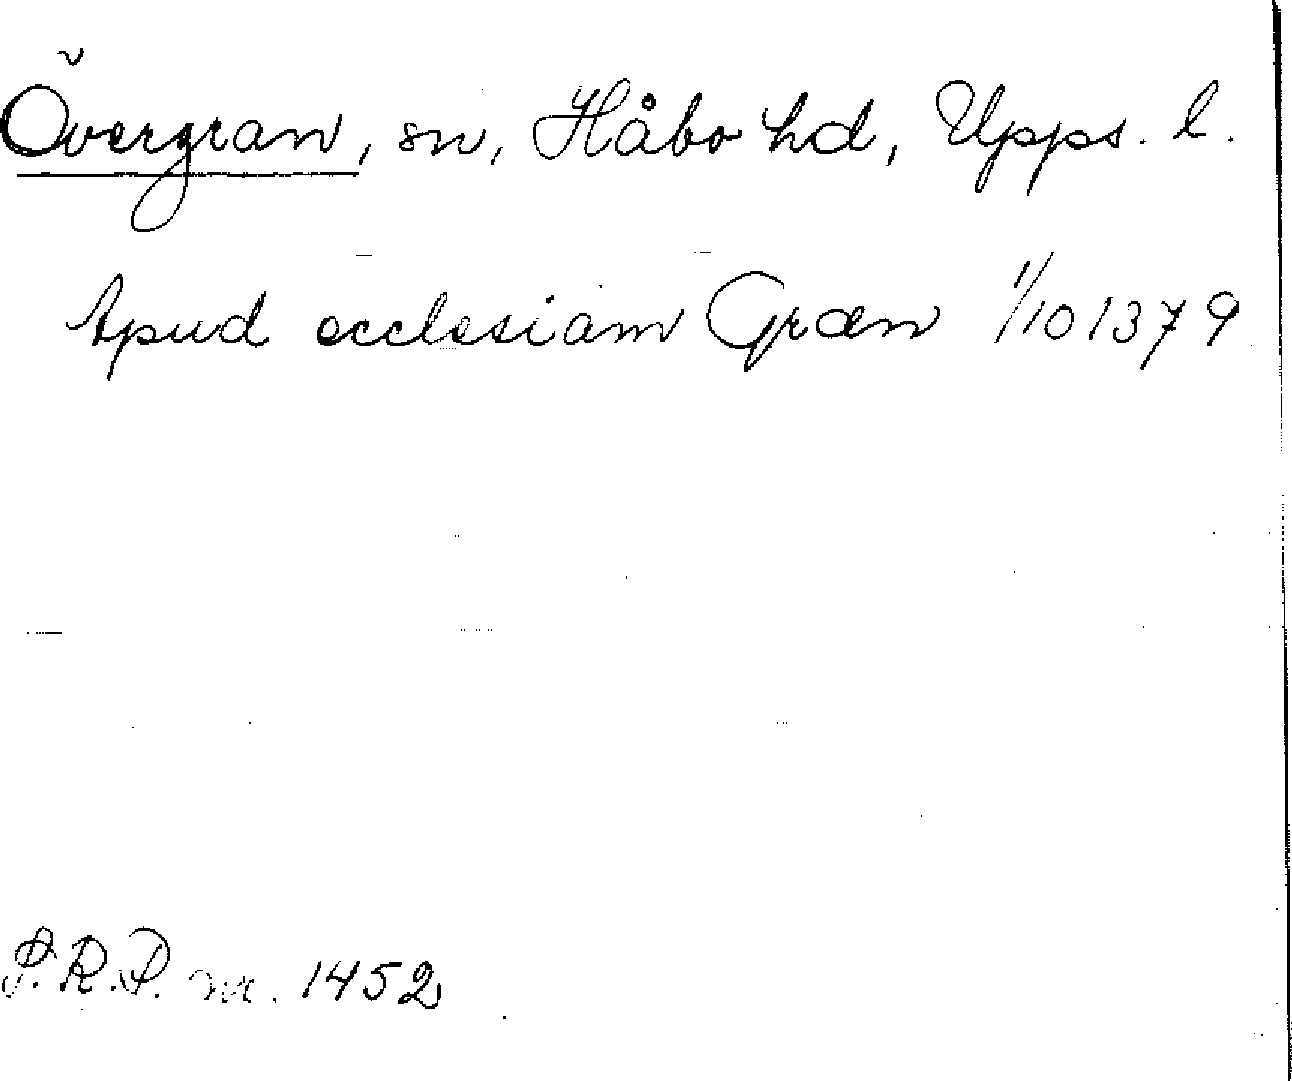 Övergran, sn, Håbo hd, Upps. l.
Apud ecclesiam Græn 1/10 1379
S.R.P. nr. 1452